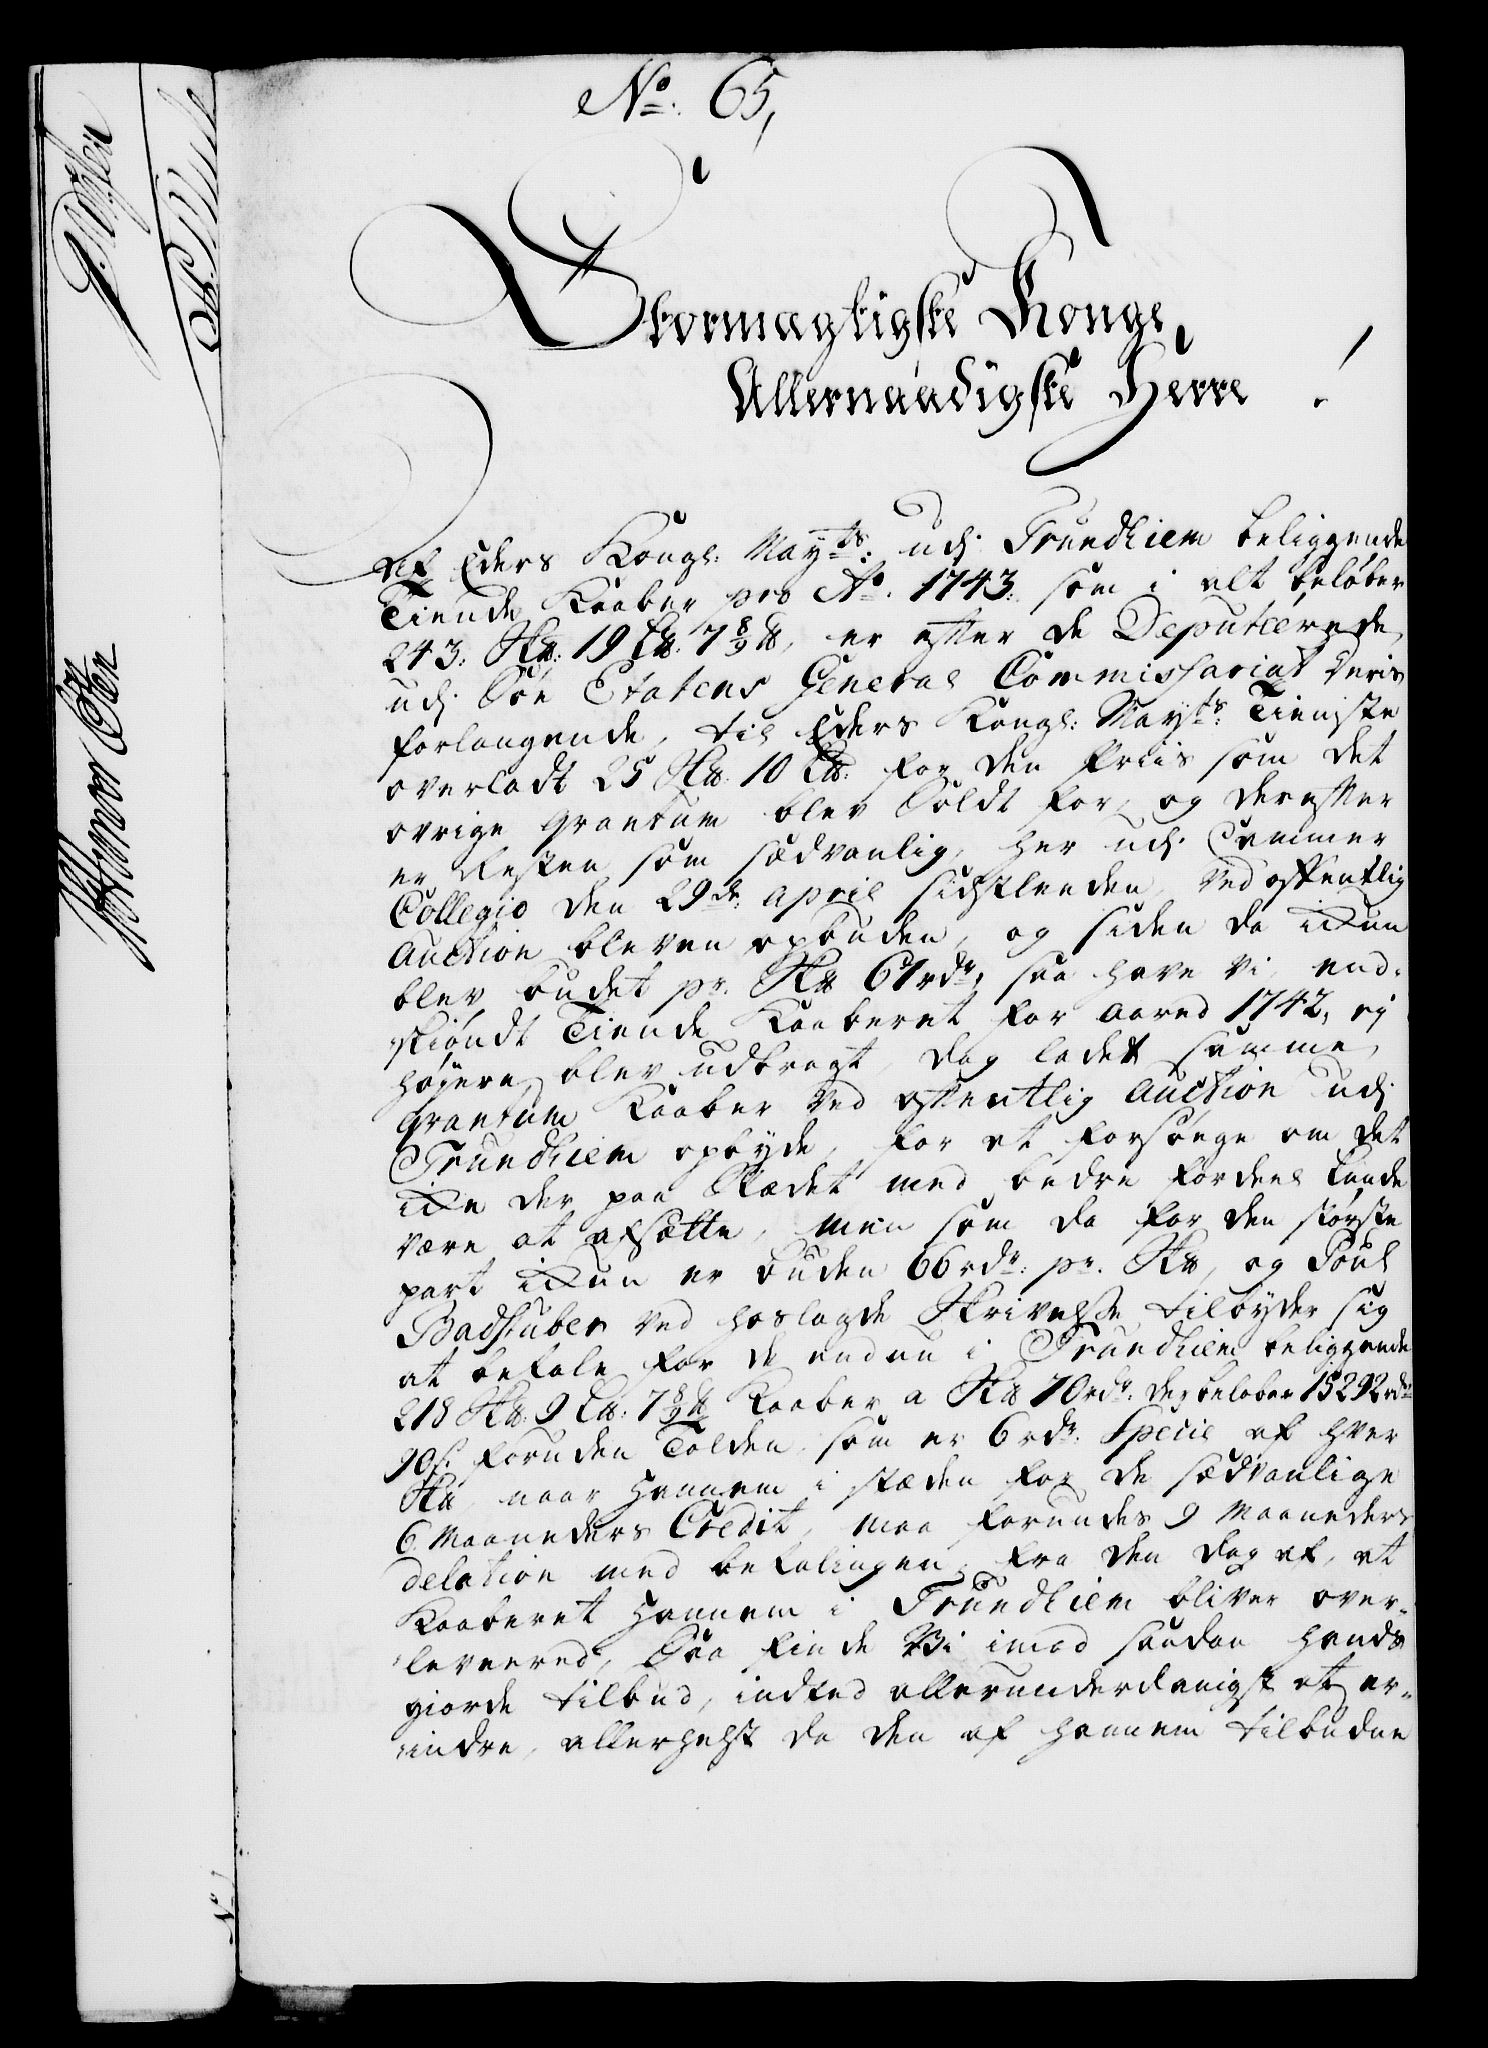 No. 65,
Stormagtigste Konge,
Allernaadigste Herre!
Af Eders Kongl: Mayts: udj Trundhiem beliggende
Tiende Kaaber pro Ao. 1743. som i alt beløber
243. Sk℔: 19 L℔. 7 8/9 ℔, er efter de Deputerede
udj Søe Etatens General Commissariat deris
forlangende, til Eders Kongl: Mayts: Tieniste
overladt 25 Sk℔. 10 L℔: for den Priis som det
øvrige qvantum blev Soldt for, og derefter
er Resten som sædvanlig, her udj Cammer
Collegio den 29de: april sidstleeden, ved offentlig
Auction bleven opbuden, og siden da ikkun
blev budet pr. Sk℔ 61 rdr, saa have vi, end-
skiøndt Tiende Kaaberet for aared 1742, ej
højere blev udbragt, dog ladet samme
qvantum Kaaber ved offentlig Auction udj
Trundhiem opbyde, for at forsøge om det
ikke der paa Stædet med bedre fordeel kunde
være at afsætte, men som da for den største
part ikkun er buden 66 rdr: pr. Sk℔, og Poul
Badstuber ved hoslagde Skrivelse tilbyder sig
at betale for de endnu i Trundhiem beliggende
218 Sk℔. 9 L℔: 7 8/9 ℔ Kaaber a Sk℔ 70 rdr: der beløber 15292 rdr
90 s. foruden Tolden, som er 6 rdr. Specie af hver
Sk℔, naar hannem i stæden for de sædvanlige
6 Maaneders Credit, maa forundes 9 Maaneders
delation med betalingen, fra den dag af, at
Kaaberet hannem i Trundhiem bliver over-
leveered, Saa finde Vi imod saadan hands
giorde tilbud, indted allerunderdanigst at er-
indre, allerhelst da den af hannem tilbudne